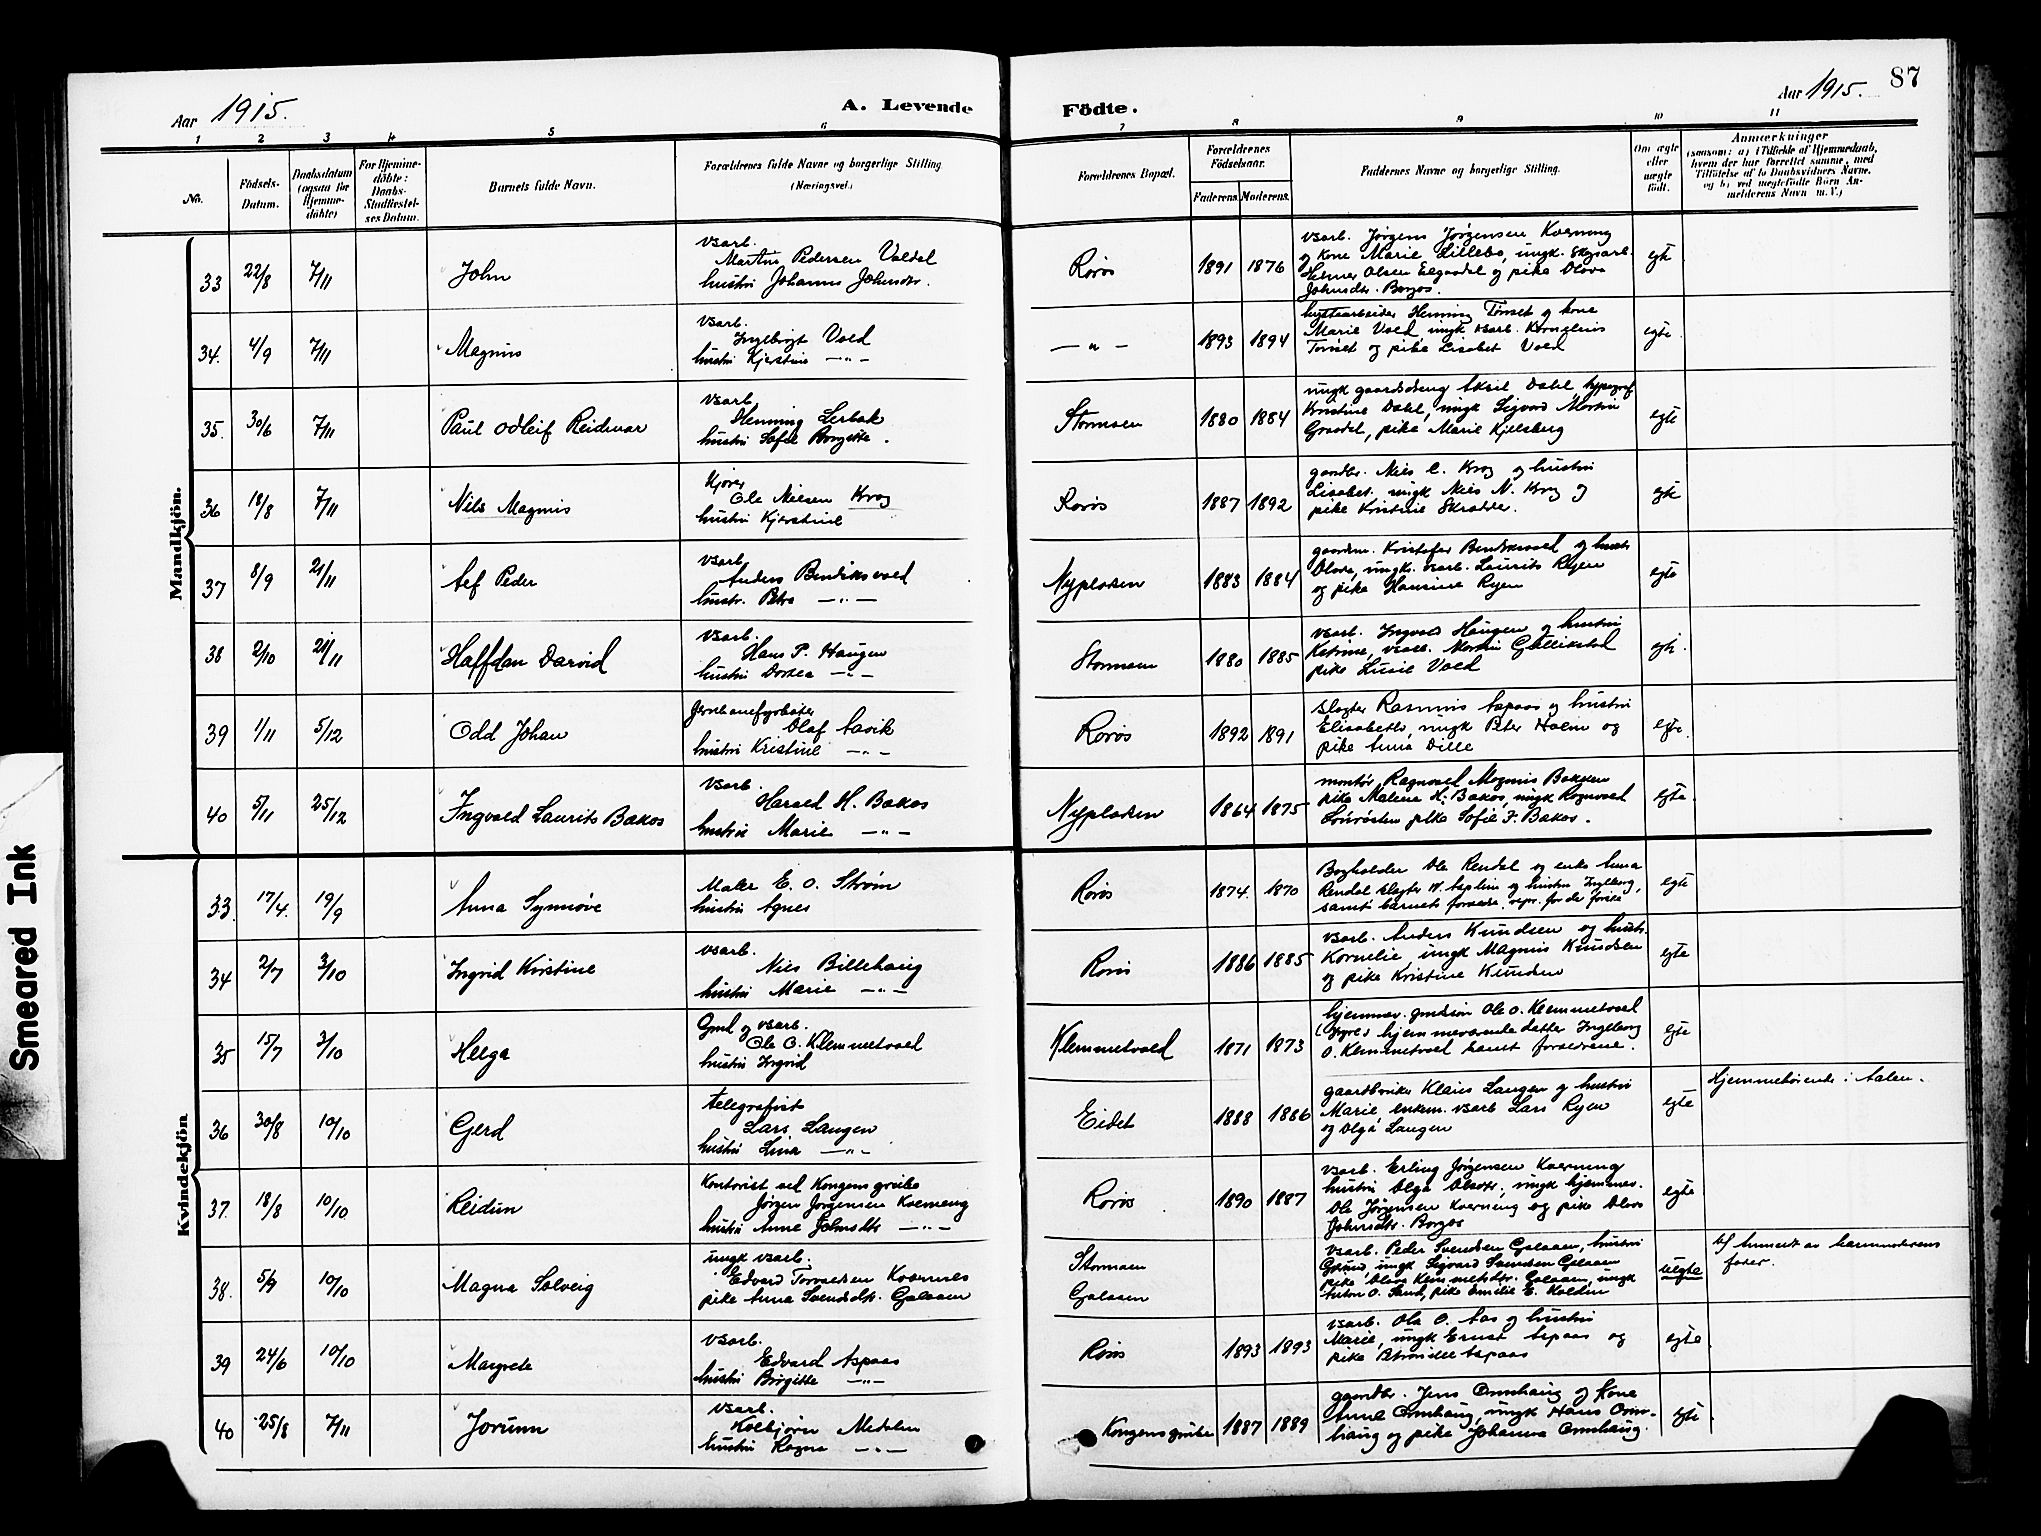 Aar 1915.
A. Levende
Födte.
Aar 1915.
87
1 2 3 4 5 6 7 8 9 10 11
No.
Födsels-
Datum.
Daabsdatum
(ogsaa for
Hjemme-
döbte)
For Hjemme-
döbte:
Daabs-
Stadfæstel-
ses Datum.
Barnets fulde Navn.
Forældrenes fulde Navne og borgerlige Stilling
(Næringsvei.)
Forældrenes Bopæl.
Forældrenes
Födselsaar.
Faderens. Moderens.
Faddernes Navne og borgerlige Stilling.
Om ægte
eller
uægte
födt.
Anmærkninger
(saasom: a) i Tilfælde af Hjemmedaab,
hvem der har forrettet samme, med
Tilföielse af to Daabsvidners Navne,
og b) ved uægtefödte Börn An-
melderens Navn m. V.)
Mandkjön.
33 22/8 7/11 John
vsarb.
Martin Pedersen Valdal
hustru Johanna Johnsdtr.
Røros 1891 1876
vsarb. Jørgen Jørgensen Kverneng
og kone Marie Lillebo, ungk.
Helmer Olsen Elgaadal og pike Olava
Johnsdtr. Borgos.
egte
34. 4/9 7/11 Magnus
vsarb.
Ingebrigt Vold
hustru Kjerstine —"—
—"— 1893 1894
hyttearbeider Henning Tønset og kone
Marie Vold, ungk. vsarb. Kornelius
Tønset og pike Lisabet Vold
egte
35. 30/6 7/11 Paul Odleif Reidmar
vsarb.
Henning Lerbak
hustru Sofie Borgitte.
Stormoen 1880 1884
ungk gaardsdreng Aksel Dahl,
Kristine Dahl, ungk Sigvard Martin
Graadal, pike Marie Kjelsberg
egte
36 18/8 7/11 Nils Magnus
Kjører
Ole Nielsen Krog
hustru Kjerstine
Røros 1887 1892
gaardbr. Niels C. Krog og hustru
Lisabet, ungk Niels N. Krog og
pike Kristine Skradde.
egte
37 8/9 21/11 Alf Peder
vsarb.
Anders Bendiksvold
hustr. Petra —"—
Nypladsen 1883 1884
gaardm. Kristofer Bendiksvold og hustr.
Olava, ungk. vsarb. Laurits Ryen
og pike Hansine Ryen
egte
38 2/10 21/11 Halfdan Darvid
vsarb.
Hans P. Haugen
hustru Dortea —"—
Stormoen 1880 1885
vsarb. Ingvald Haugen og hustru
Katrine, vsarb. Martin Gullikstad
pike Lusie Vold
egte.
39 1/11 5/12 Odd Johan
Jernbanefyrbøter
Olaf Aavik
hustru Kristine —"—
Røros 1892 1891
slagter Rasmus Aspaas og hustru
Elisabeth, ungk Peter Holm og
pike Anna Dille
egte.
40 5/11 25/12 Ingvald Laurits Bakos
vsarb.
Harald H. Bakos
hustru Marie —"—
Nypladsen 1864 1875
montør, Ragnvald Magnus Bakken
pike Malena H. Bakos, ungk Ragnvald
pike Sofie J. Bakos.
egte.
Kvindekjön
33. 17/4. 19/9 Anna Synnøve
Maler E. O. Strøm
hustru Agnes
Røros 1874. 1870
Bogholder Ole Rendal og enke Anna
Rendal slagter og hustru Ingeborg,
samt barnets forældre
egte
34 2/7 3/10 Ingrid Kirstine
vsarb.
Niels Billehaug
hustru Marie —"—
Røros 1886 1885
vsarb. Anders Knudsen og hustr.
Kornelie, ungk Magnus Knudsen
og pike Kristine Knudsen
egte
35 15/7 3/10 Helga
Gmd og vsarb.
Ole O. Klemmetvold
hustru Ingrid
Klemmetvold 1871 1873
hjemmev. gmdsøn Ole O. Klemmetvold
hjemmeværende datter Ingeborg
O. Klemmetvold samt forældrene.
egte
36 30/8 10/10 Gerd
telegrafist
Lars Langen
hustru Lina —"—
Eidet 1888 1886
gaardbruker Klaus Langen og hustru
Marie, enkem. vsarb Lars Ryen
og Olga Langen
egte
Hjemmehørende i Aalen.
37. 18/8 10/10 Reidun
Kontorist ved Kongens grube
Jørgen Jørgensen Kverneng
hustru Anne Johnsdtr —"—
Røros 1890 1887
vsarb. Erling Jørgensen Kverneng
hustru Olga Olsdtr., ungk hjemmev.
Ole Jørgensen Kverneng og pike Olava
Johnsdtr. Borgos
egte
38. 5/7 10/10 Magna Solveig
ungk vsarb.
Edvard Torvaldsen Kvernes
pike Anna Svendsdtr. Galaaen
Stormoen
Galaaen
vsarb. Peder Svendsen Galaaen, hustru
Gurid, ungk Sigvard Svendsen Galaaen
pike Olava Klemmetsdtr. Galaaen, ungk
Anton O. Sand, pike Emilie E. Kolden
uegte
Anmeldt av barnemoderens
fader.
39 24/6 10/10 Margrete
vsarb.
Edvard Aspaas
hustru Birgitte —"—
Røros 1893 1893
vsarb. Ole O. Aas og hustru
Marie, ungk Ernst Aspaas og
pike Petronille Aspaas
egte.
40 25/8 7/11 Jorunn
vsarb.
Kolbjørn Medalen
hustru Ragna —"—
Kongens grube 1887 1889
gaardbr. Jens Ormhaug og kone
Anne Ormhaug, ungk Hans Orm-
haug og pike Johanna Ormhaug.
egte
Smeared Ink